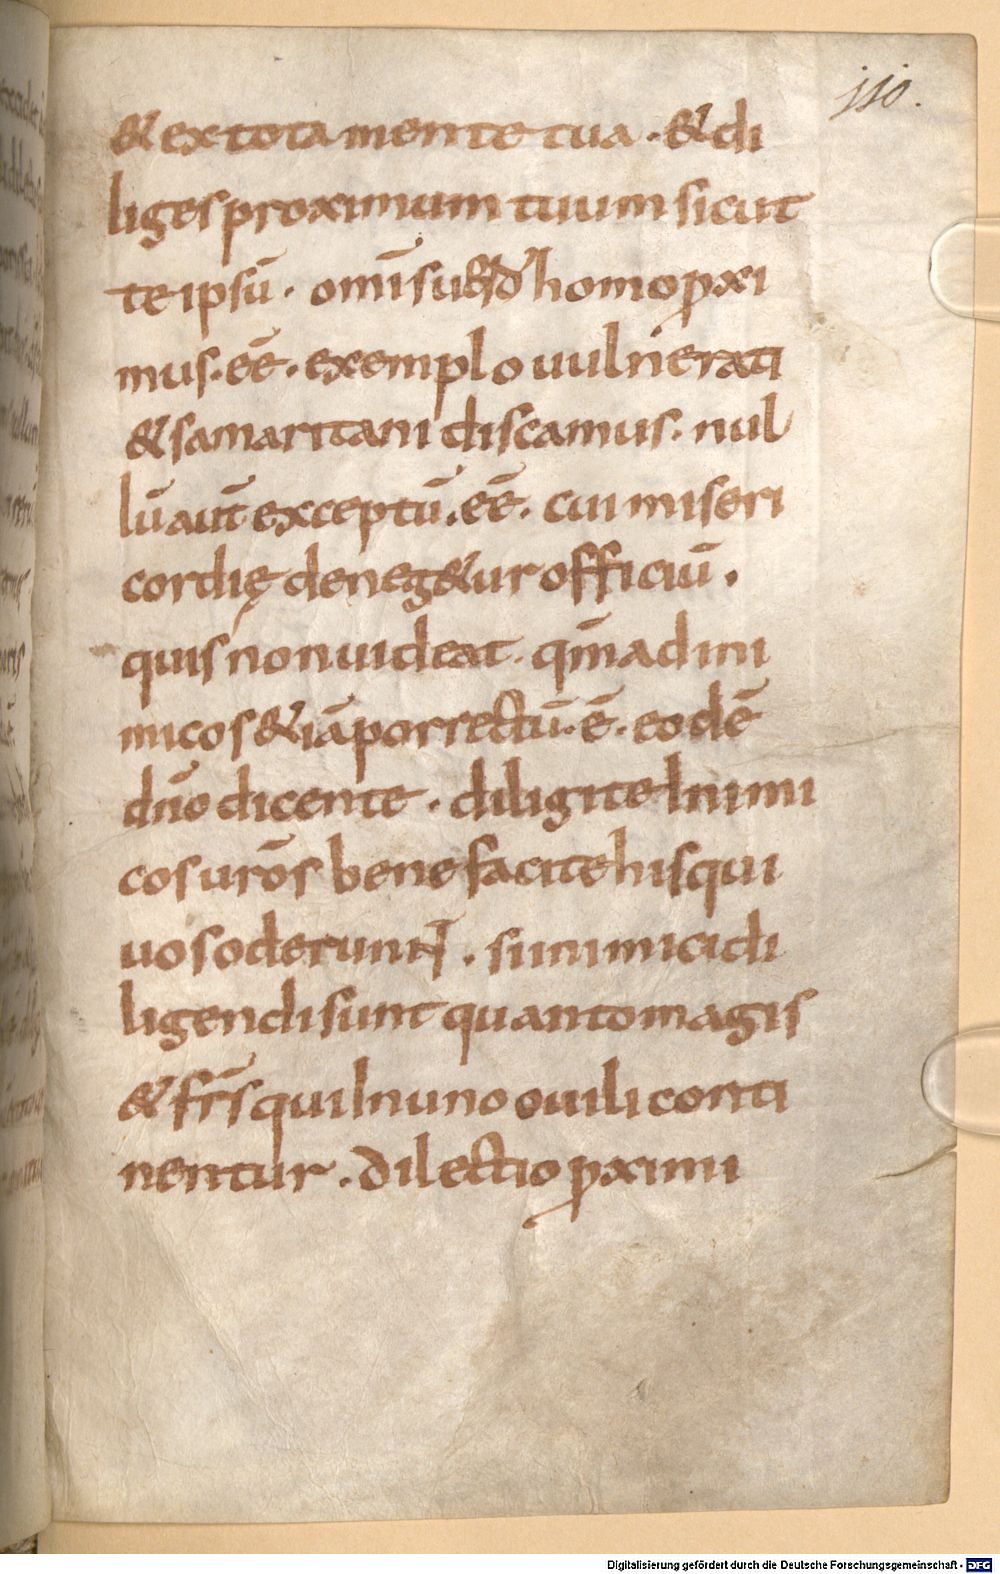 110.
& ex tota mente tua · & di
liges proximum tuum sicut
te ipsū · omīs homo pxi
mus · eē · exemplo uulnerati
& samaritani discamus · nul
lū aūt exceptū · eē · cui miseri
cordię deneg&ur officiū ·
quis non uideat · qm̄ ad ini
micos &iā porrectū · ē · eodē
dn̄o dicente · diligite inimi
cos urōs bene facite his qui
uos oderunt · si inimici di
ligendi sunt quanto magis
& fr̄s qui in uno ouili conti
nentur · dilectio pximi
Digitalisierung gefördert durch die Deutsche Forschungsgemeinschaft - DFG